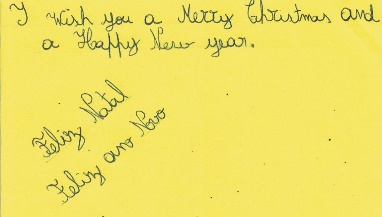 I wish you a Merry Christmas and
a Happy New year.
Feliz Natal
Feliz ano Novo